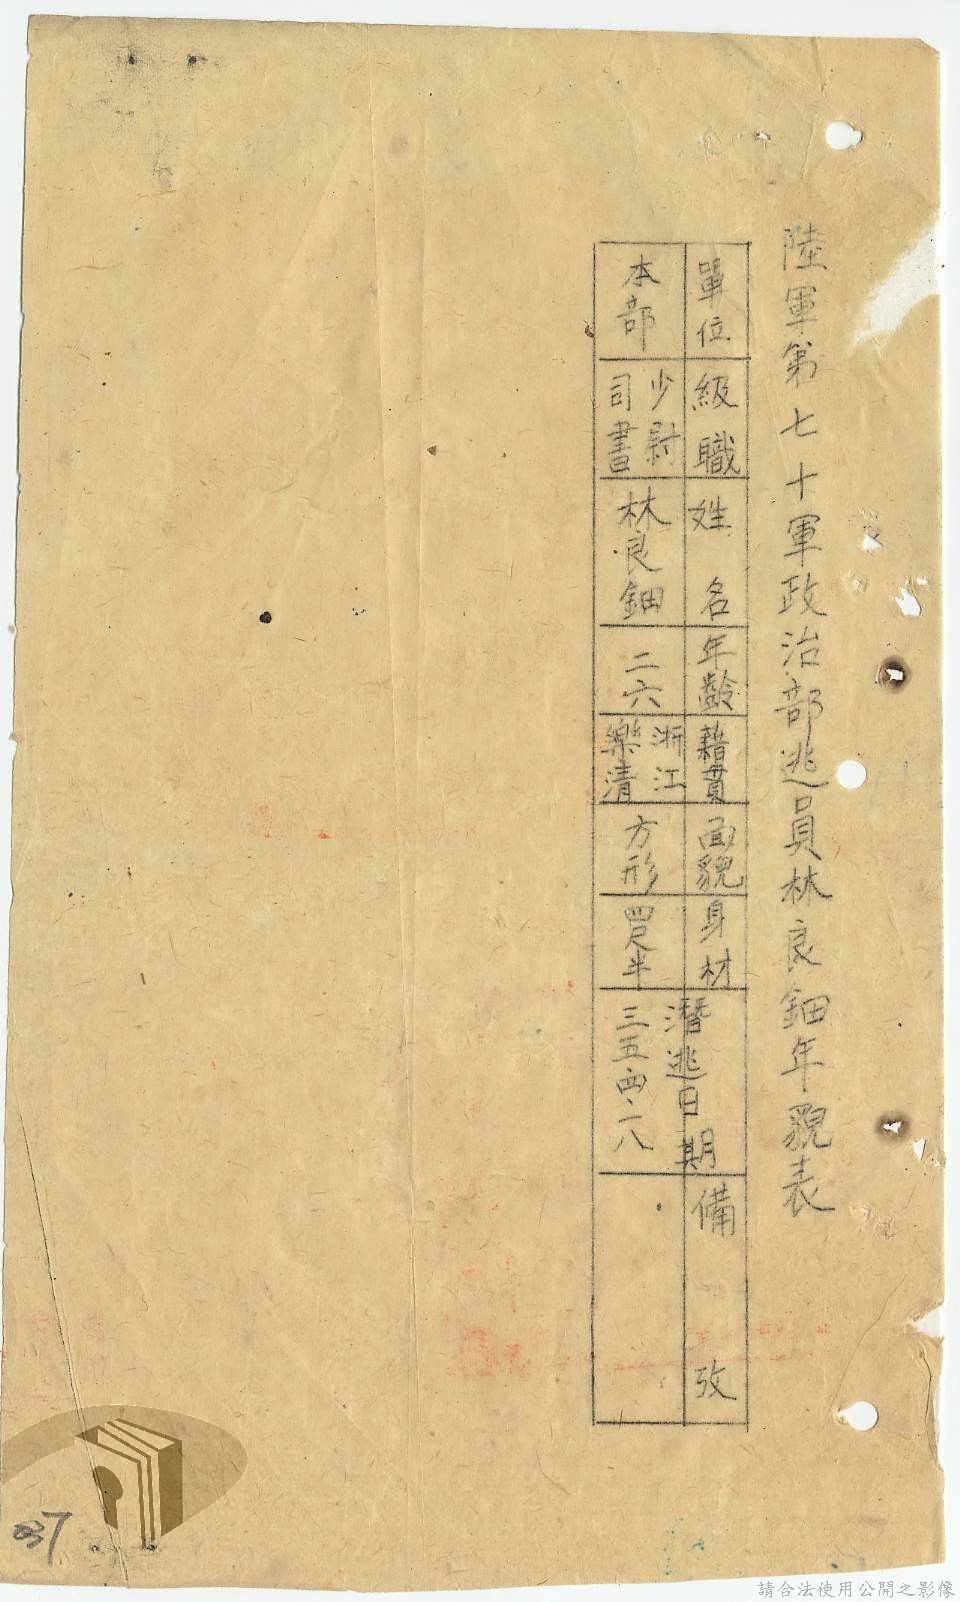 陸軍第七十軍政治部逃員林良鈿年貌表
單位 級職 姓名 年齡 藉貫 面貌 身材 潛逃日期 備攷
本部 少尉司書 林良鈿 二六 浙江樂清 方形 四尺半 三五·四·一八
037
請合法使用公開之影像